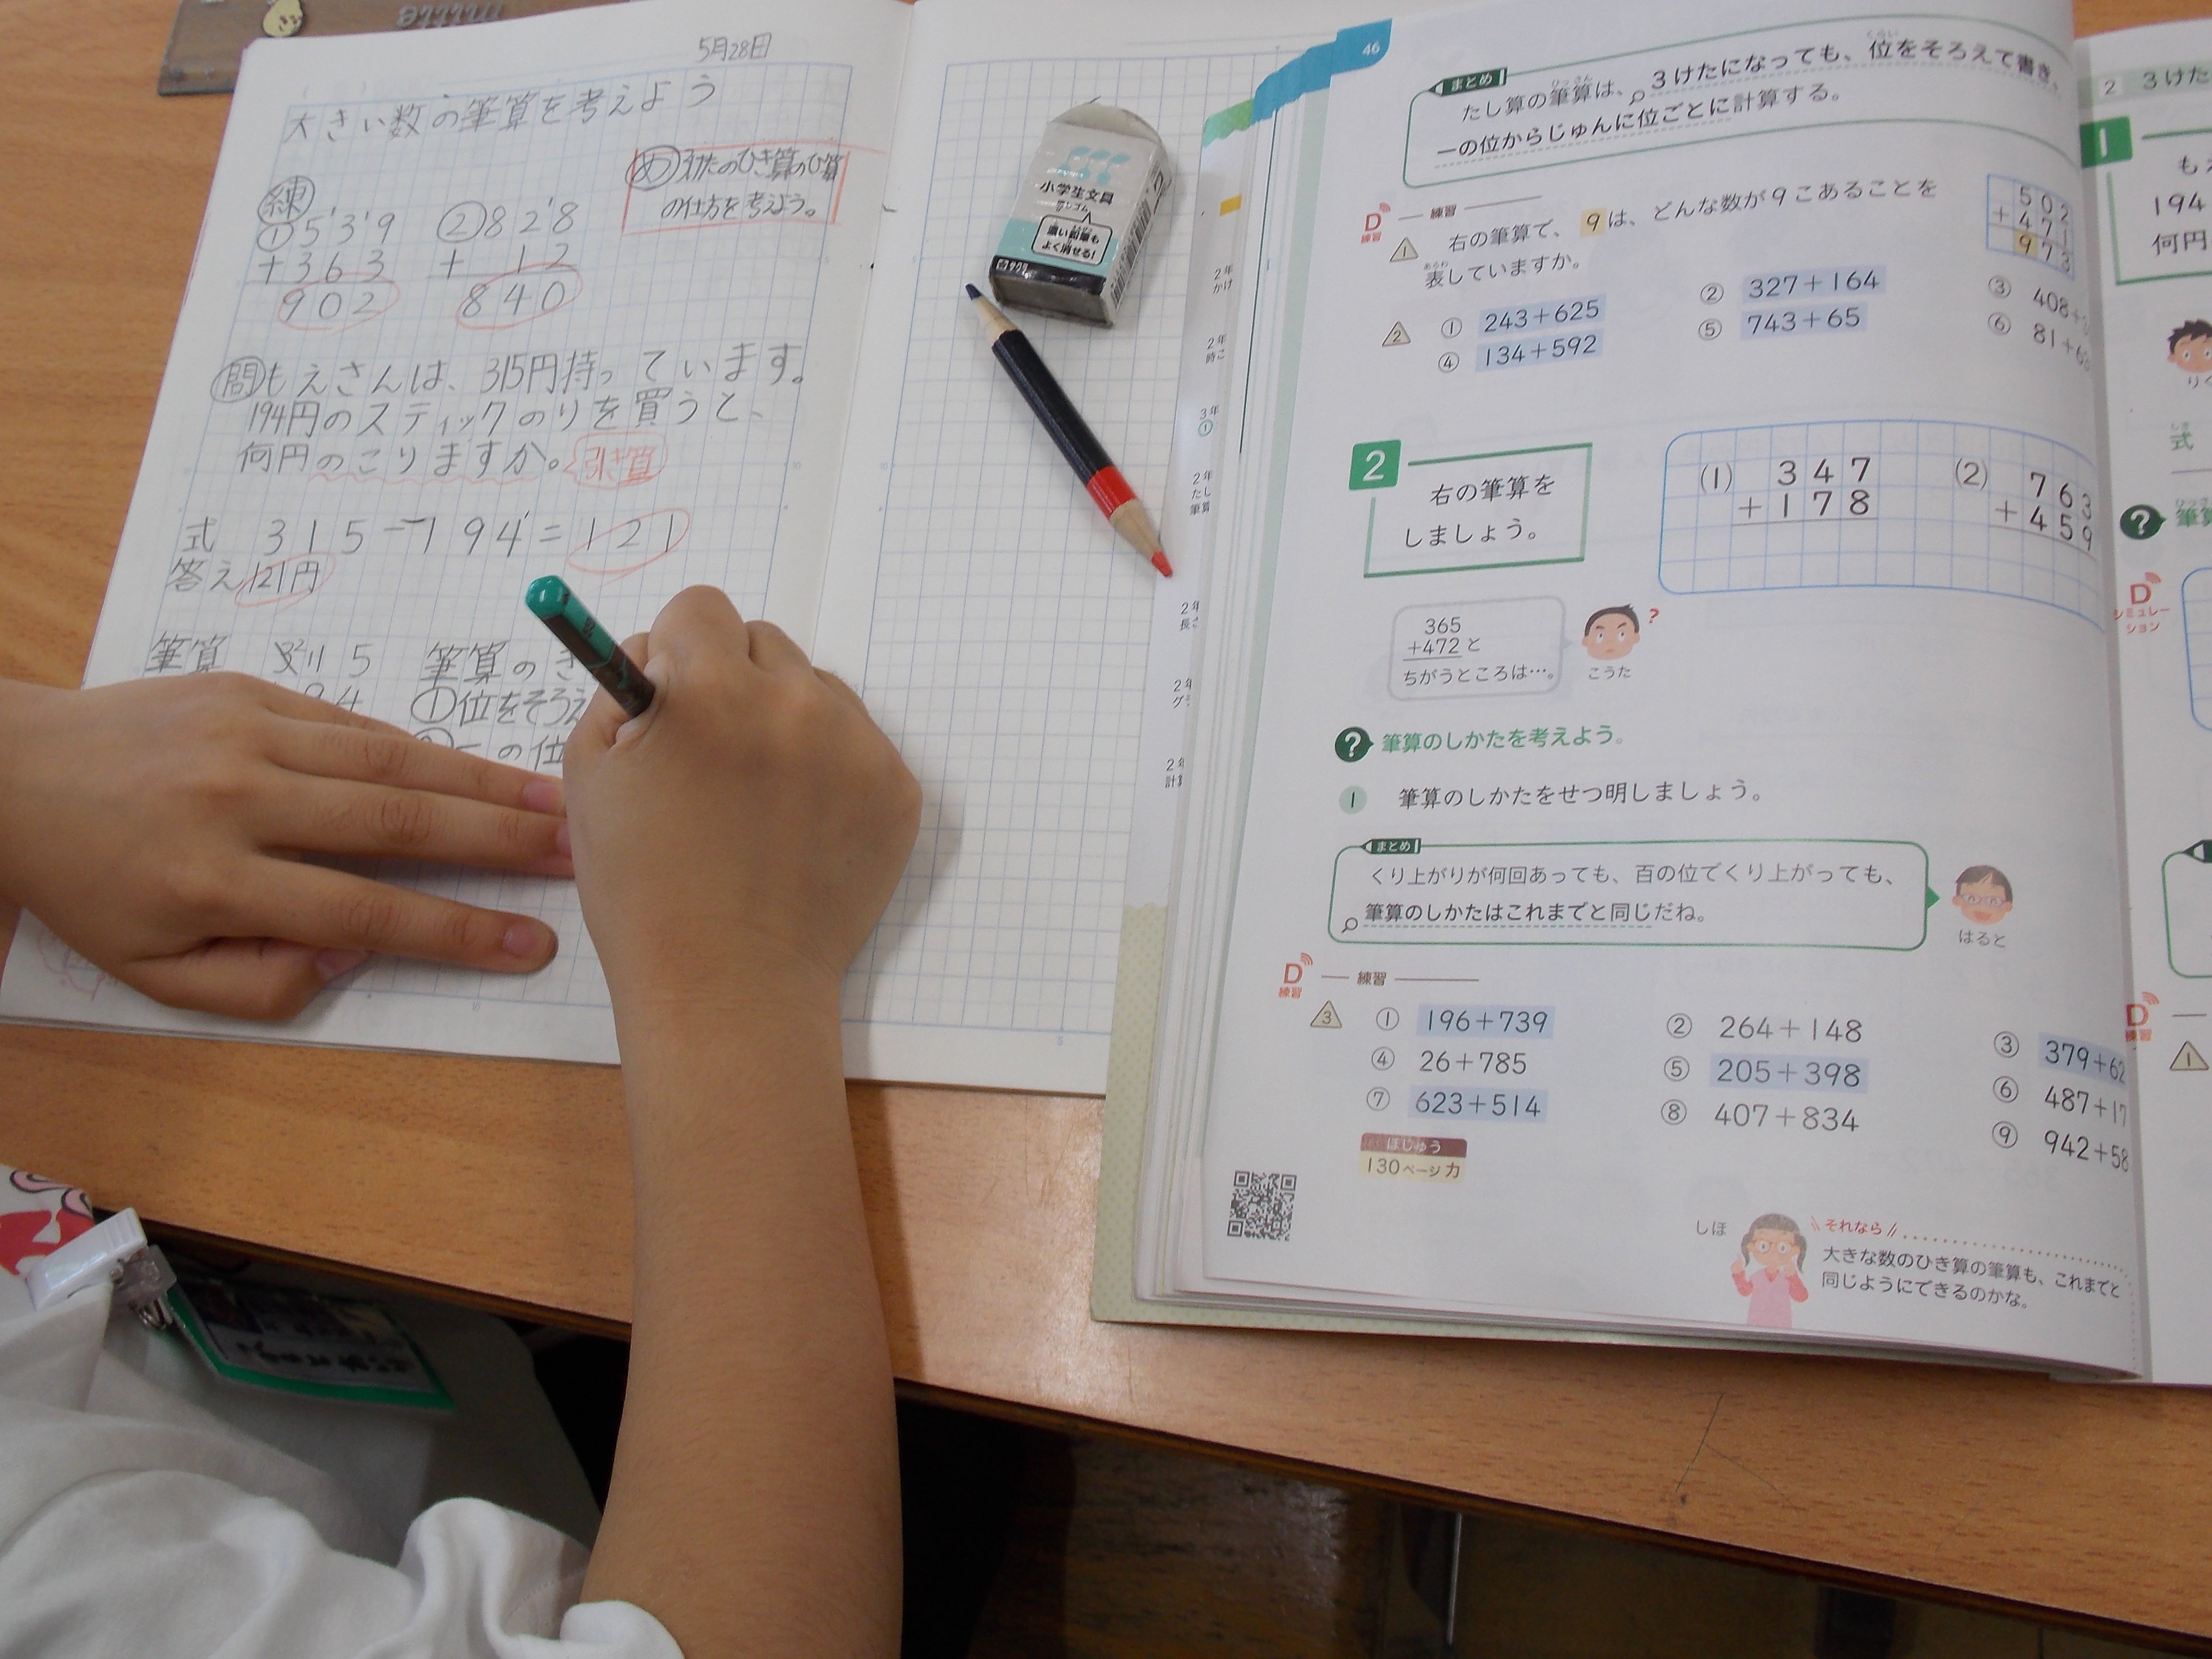 5月28日
大きい数の筆算を考えよう
め 3けたのひき算のひっ算
の仕方を考えよう。
練
①539
+363
902
②828
+ 12
840
問 もえさんは、315円持っています。
194円のスティックのりを買うと、
何円のこりますか。
引き算
式 315-194=121
答え121円
筆算 315
筆算の
①位をそろえ
一の位
小学生文具
消しゴム
濃い鉛筆も
よく消せる!
サクラ
2年
かけ
2年
時こ
3年
①
2年
たし
筆算
2年
長さ
2年
グラ
2年
計算
46
まとめ
たし算の筆算は、3けたになっても、位をそろえて書き、
一の位からじゅんに位ごとに計算する。
D 練習
練習
1 右の筆算で、9は、どんな数が9こあることを
表していますか。
502
+471
973
2 ① 243+625
② 327+164
③ 408+
④ 134+592
⑤ 743+65
⑥ 81+6
2 右の筆算を
しましょう。
(1) 347
+178
(2) 763
+459
365
+472と
ちがうところは…。
?
こうた
? 筆算のしかたを考えよう。
1 筆算のしかたをせつ明しましょう。
まとめ
くり上がりが何回あっても、百の位でくり上がっても、
筆算のしかたはこれまでと同じだね。
はると
D 練習
練習
3 ① 196+739
② 264+148
③ 379+62
④ 26+785
⑤ 205+398
⑥ 487+17
⑦ 623+514
⑧ 407+834
⑨ 942+58
ほじゅう
130ページカ
しほ
それなら
大きな数のひき算の筆算も、これまでと
同じようにできるのかな。
2 3けた
1
も
194
何円
りく
式
? 筆算
D
シミュレー
ション
D
練習
1